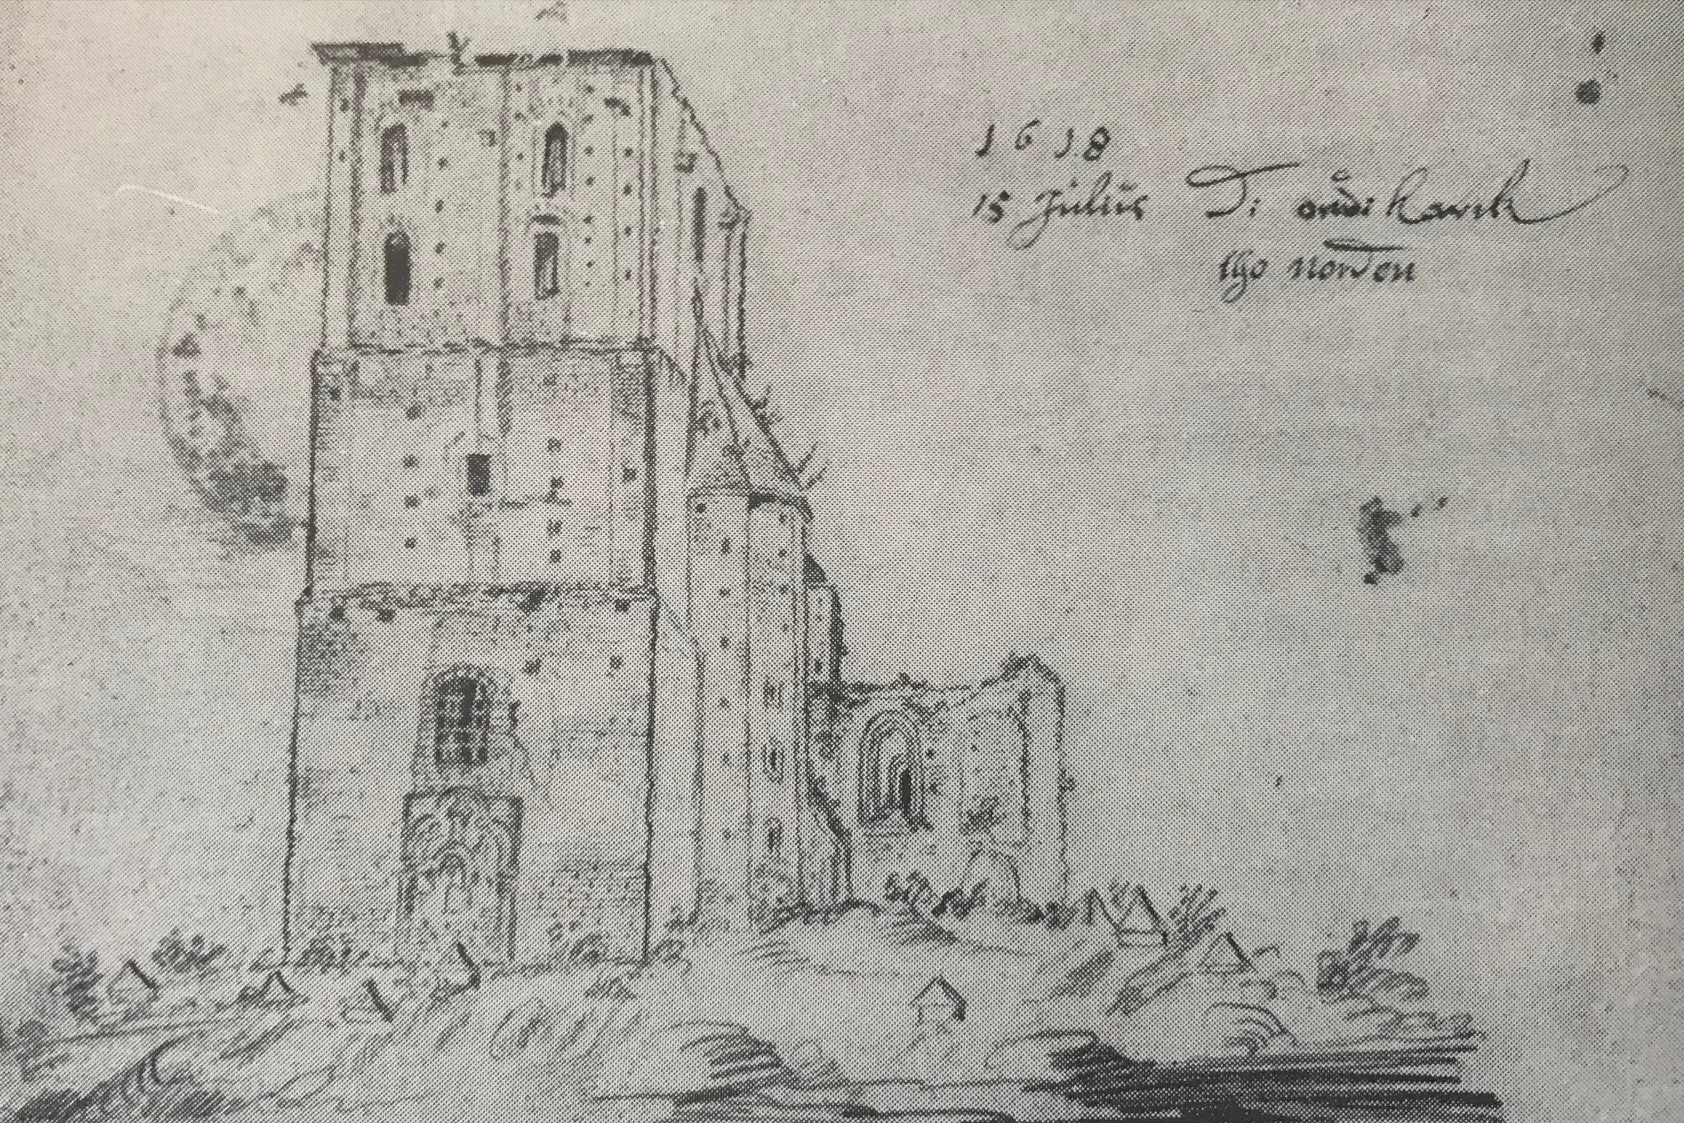 1618
15 Juliuς Di oude karck
tho norden